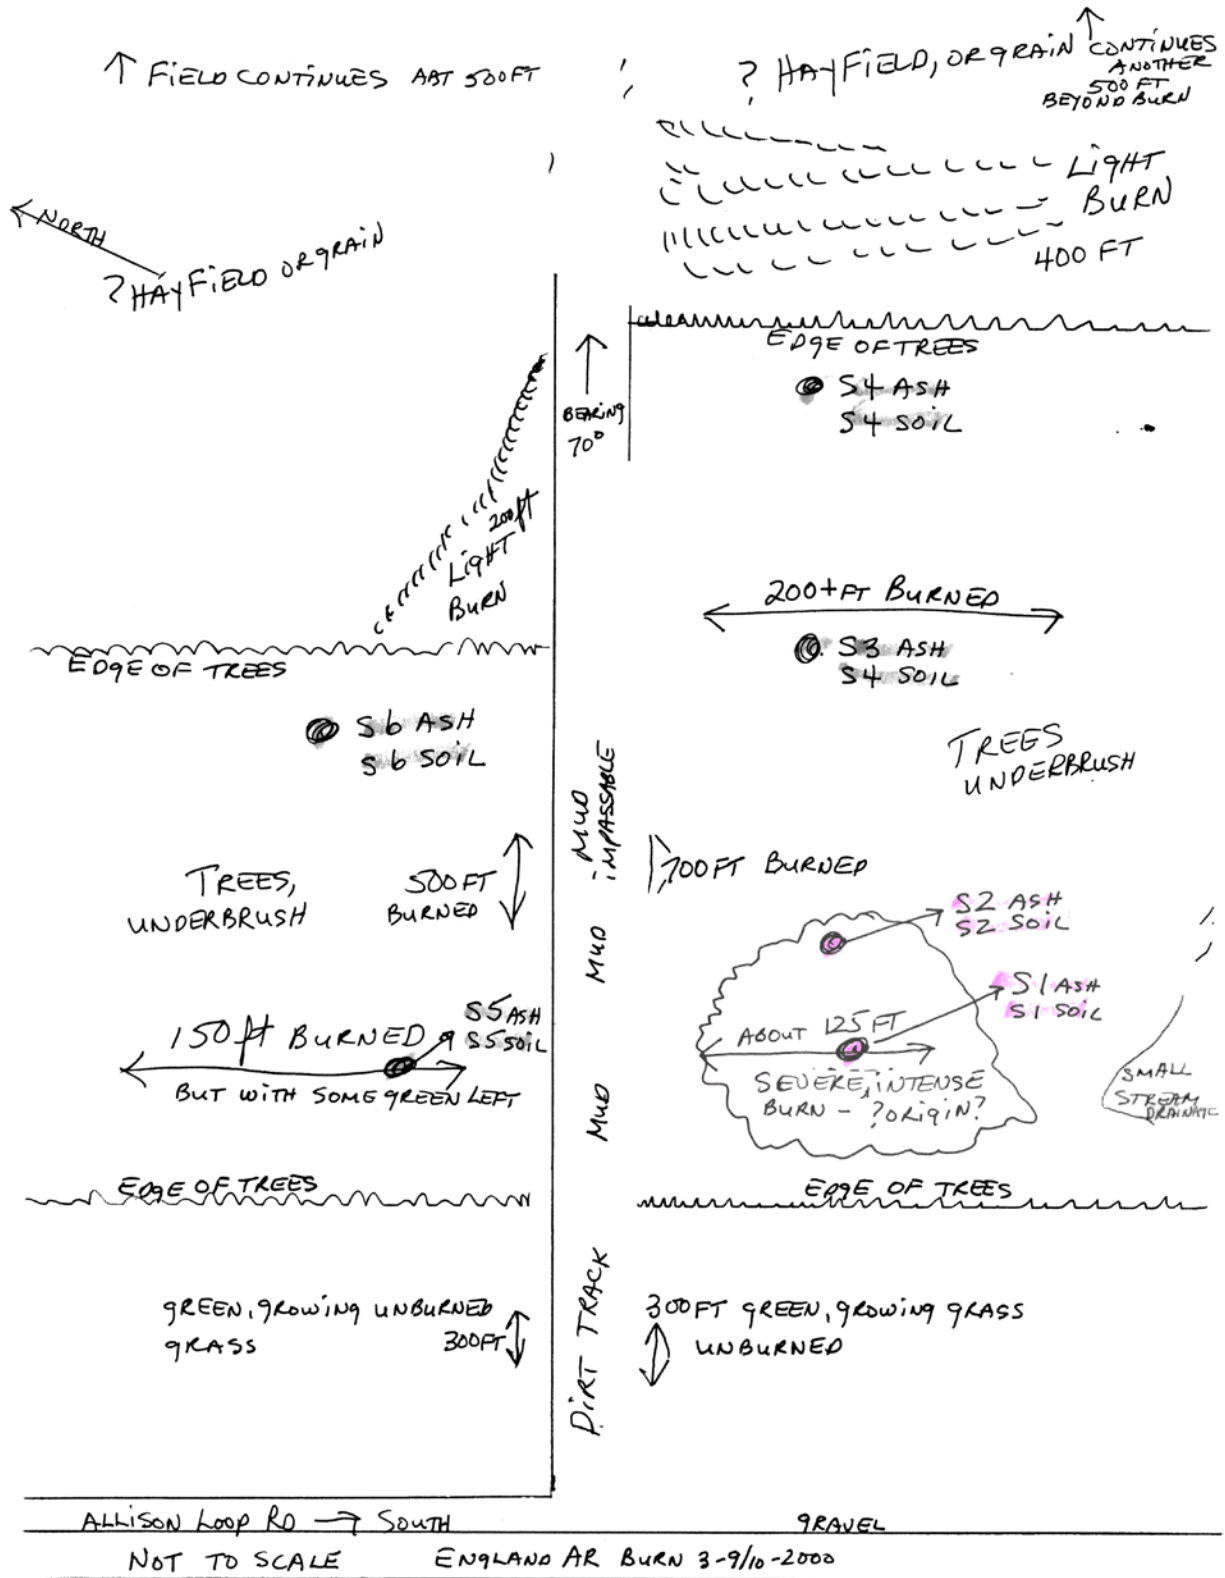 ↑ FIELD CONTINUES ABT 500FT
? HAYFIELD, OR GRAIN
↑ CONTINUES
ANOTHER
500 FT
BEYOND BURN
LIGHT
BURN
400 FT
NORTH
? HAYFIELD OR GRAIN
EDGE OF TREES
S4 ASH
S4 SOIL
BEARING
70°
200ft
LIGHT
BURN
200+FT BURNED
S3 ASH
S4 SOIL
EDGE OF TREES
S6 ASH
S6 SOIL
TREES
UNDERBRUSH
MUD
IMPASSABLE
TREES,
UNDERBRUSH
500FT
BURNED
700FT BURNED
S2 ASH
S2 SOIL
MUD
S1 ASH
S1 SOIL
S5 ASH
S5 SOIL
150ft BURNED
BUT WITH SOME GREEN LEFT
ABOUT 125 FT
SEVERE, INTENSE
BURN - ?ORIGIN?
SMALL
STREAM
DRAINAGE
MUD
EDGE OF TREES
EDGE OF TREES
GREEN, GROWING UNBURNED
GRASS
300FT
DIRT TRACK
300FT GREEN, GROWING GRASS
UNBURNED
ALLISON LOOP RD → SOUTH
GRAVEL
NOT TO SCALE
ENGLAND AR BURN 3-9/10-2000